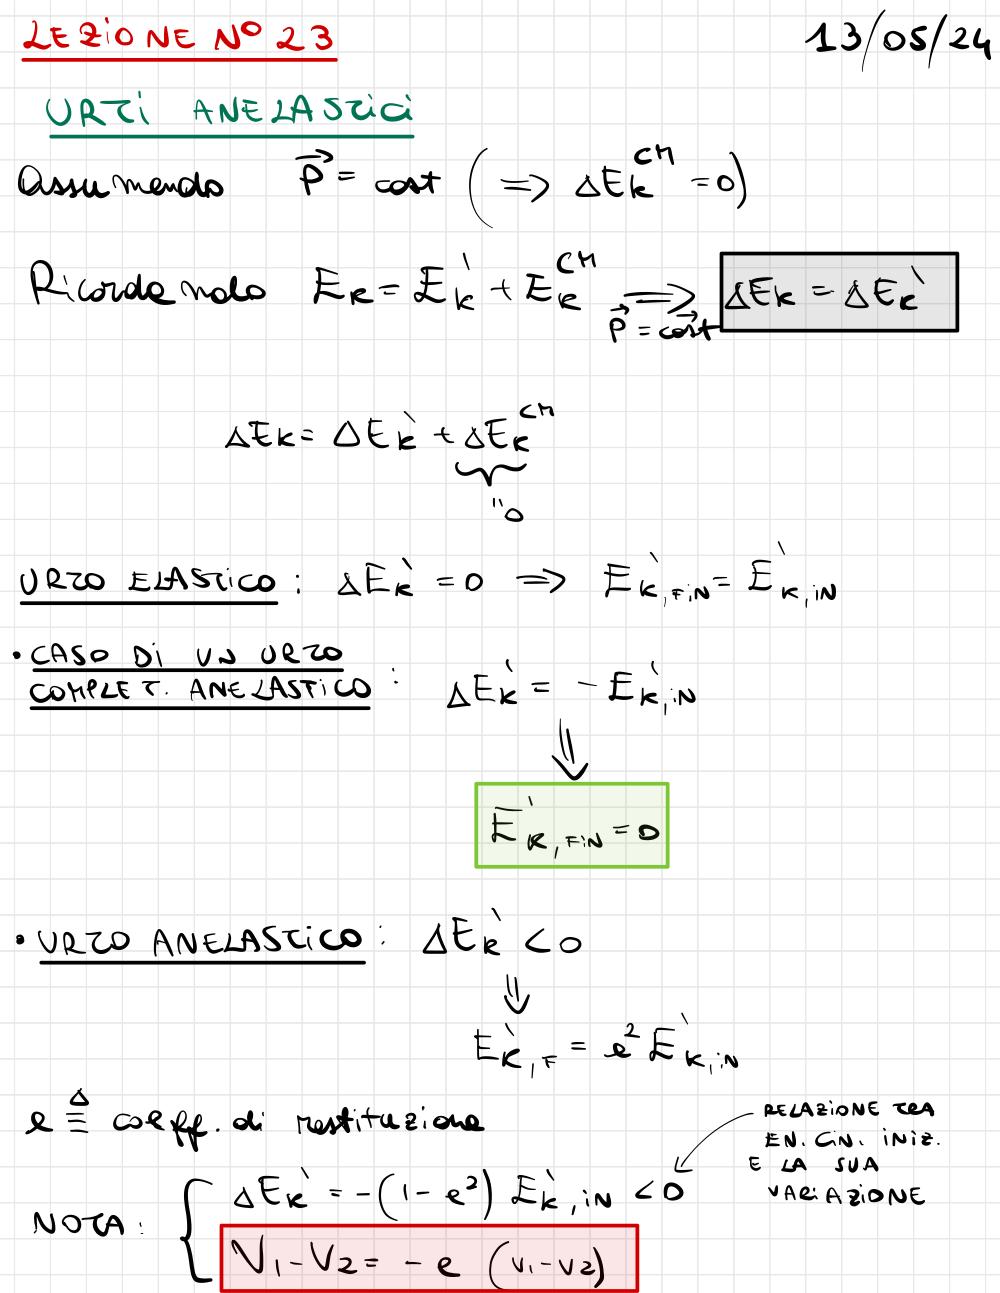 LEZIONE N° 23 13/05/24
URTI ANELASTICI
Assumendo P⃗ = cost (⟹ ΔE_k^CM = 0)
Ricordando E_k = E'_k + E_k^CM ⟹ ΔE_k = ΔE'_k
P⃗ = cost⃗
ΔE_k = ΔE'_k + ΔE_k^CM
"0
URTO ELASTICO : ΔE'_k = 0 ⟹ E'_k,FIN = E'_k,IN
• CASO DI UN URTO
COMPLET. ANELASTICO : ΔE'_k = - E'_k,IN
⇓
E'_k,FIN = 0
• URTO ANELASTICO : ΔE'_k < 0
⇓
E'_k,F = e² E'_k,IN
e ≜ coeff. di restituzione
RELAZIONE TRA
EN. CIN. INIZ.
E LA SUA
VARIAZIONE
NOTA: { ΔE'_k = -(1 - e²) E'_k,IN < 0
V₁ - V₂ = - e (v₁ - v₂)